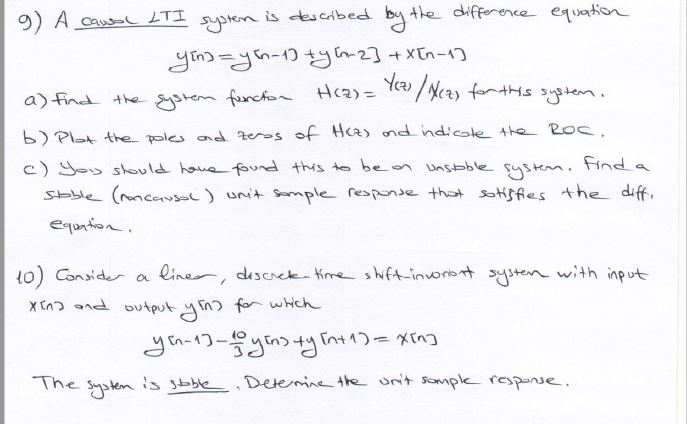 9) A causal LTI system is described by the difference equation
y[n] = y[n-1] + y[n-2] + x[n-1]
a) Find the system function H(z) = Y(z) / X(z) for this system.
b) Plot the poles and zeros of H(z) and indicate the ROC.
c) You should have found this to be an unstable system. Find a
stable (noncausal) unit sample response that satisfies the diff.
equation.
10) Consider a linear, discrete-time shift-invariant system with input
x[n] and output y[n] for which
y[n-1] - 10/3 y[n] + y[n+1] = x[n]
The system is stable. Determine the unit sample response.